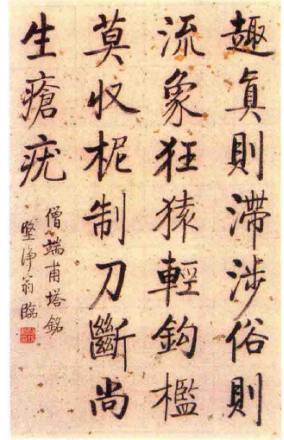 趣眞則滯涉俗則
流象狂猿輕鈎檻
莫収柅制刀斷尚
生瘡疣
僧端甫塔銘
堅淨翁臨